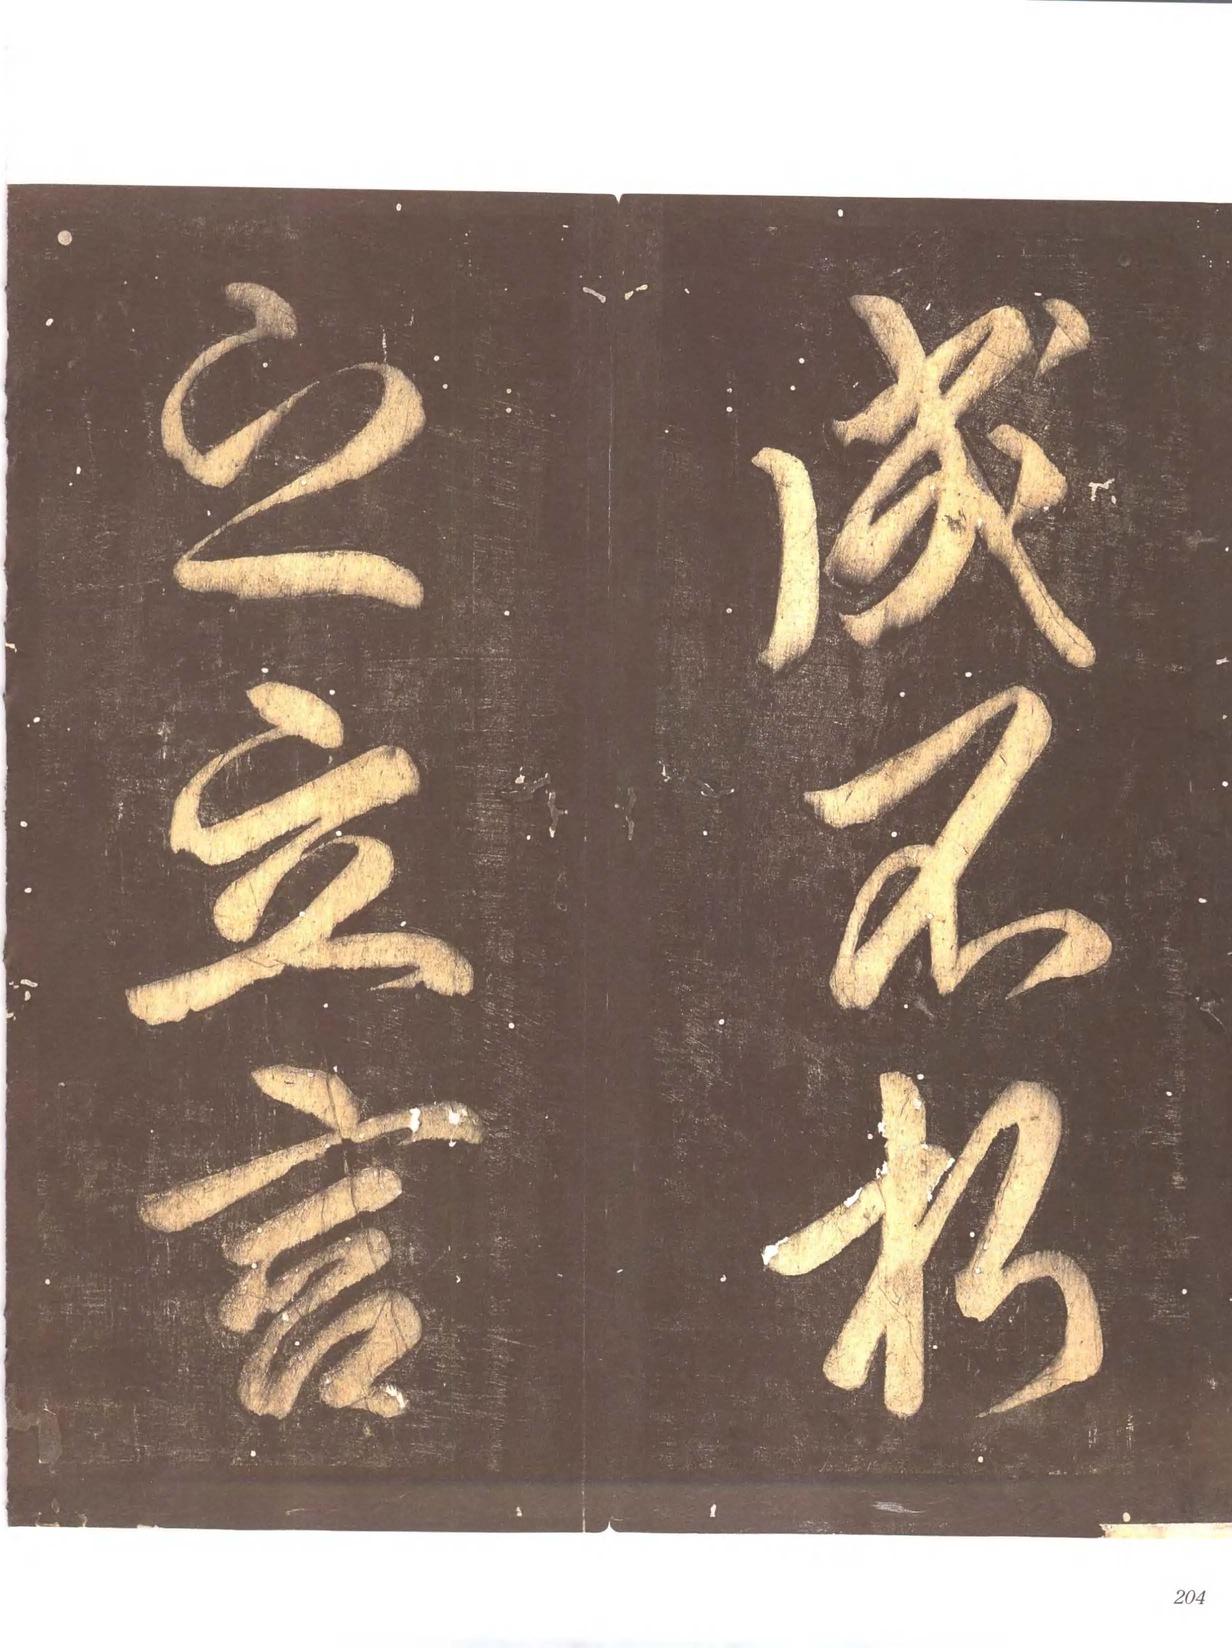 成不朽
之立言
204